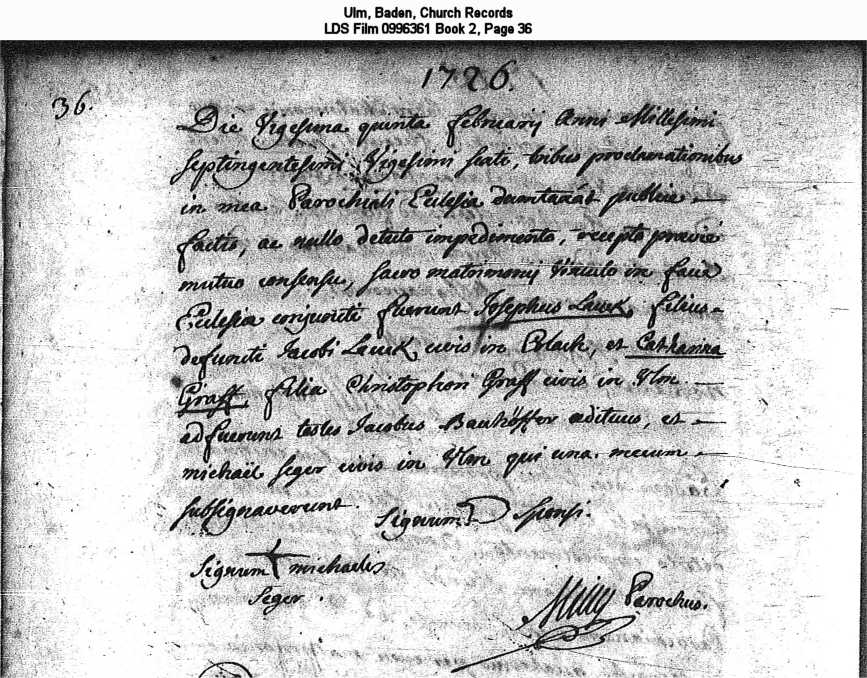 Ulm, Baden, Church Records
LDS Film 0996361 Book 2, Page 36
1726.
36.
Die Vigesima quinta februarij Anni Millesimi
septingentesimi Vigesimi sexti, tribus proclamationibus
in mea Parochiali Eclesia dumtaxàt publice
factis, ac nullo detecto impedimento, recepto previe
mutuo consensu, sacro matrimonij vinculo in facie
Eclesia conjuncti fuerunt Josephus Lauck, filius
defuncti Jacobi Lauck civis in, et Catharina
Graff, filia Christophori Graff civis in Vlm
adfuerunt testes Jacobus Bauhöffer ædituus, et
michael seger civis in Vlm qui una mecum
subsignaverunt.
Signum Sponsi.
Signum michaelis
Seger.
Parochus.